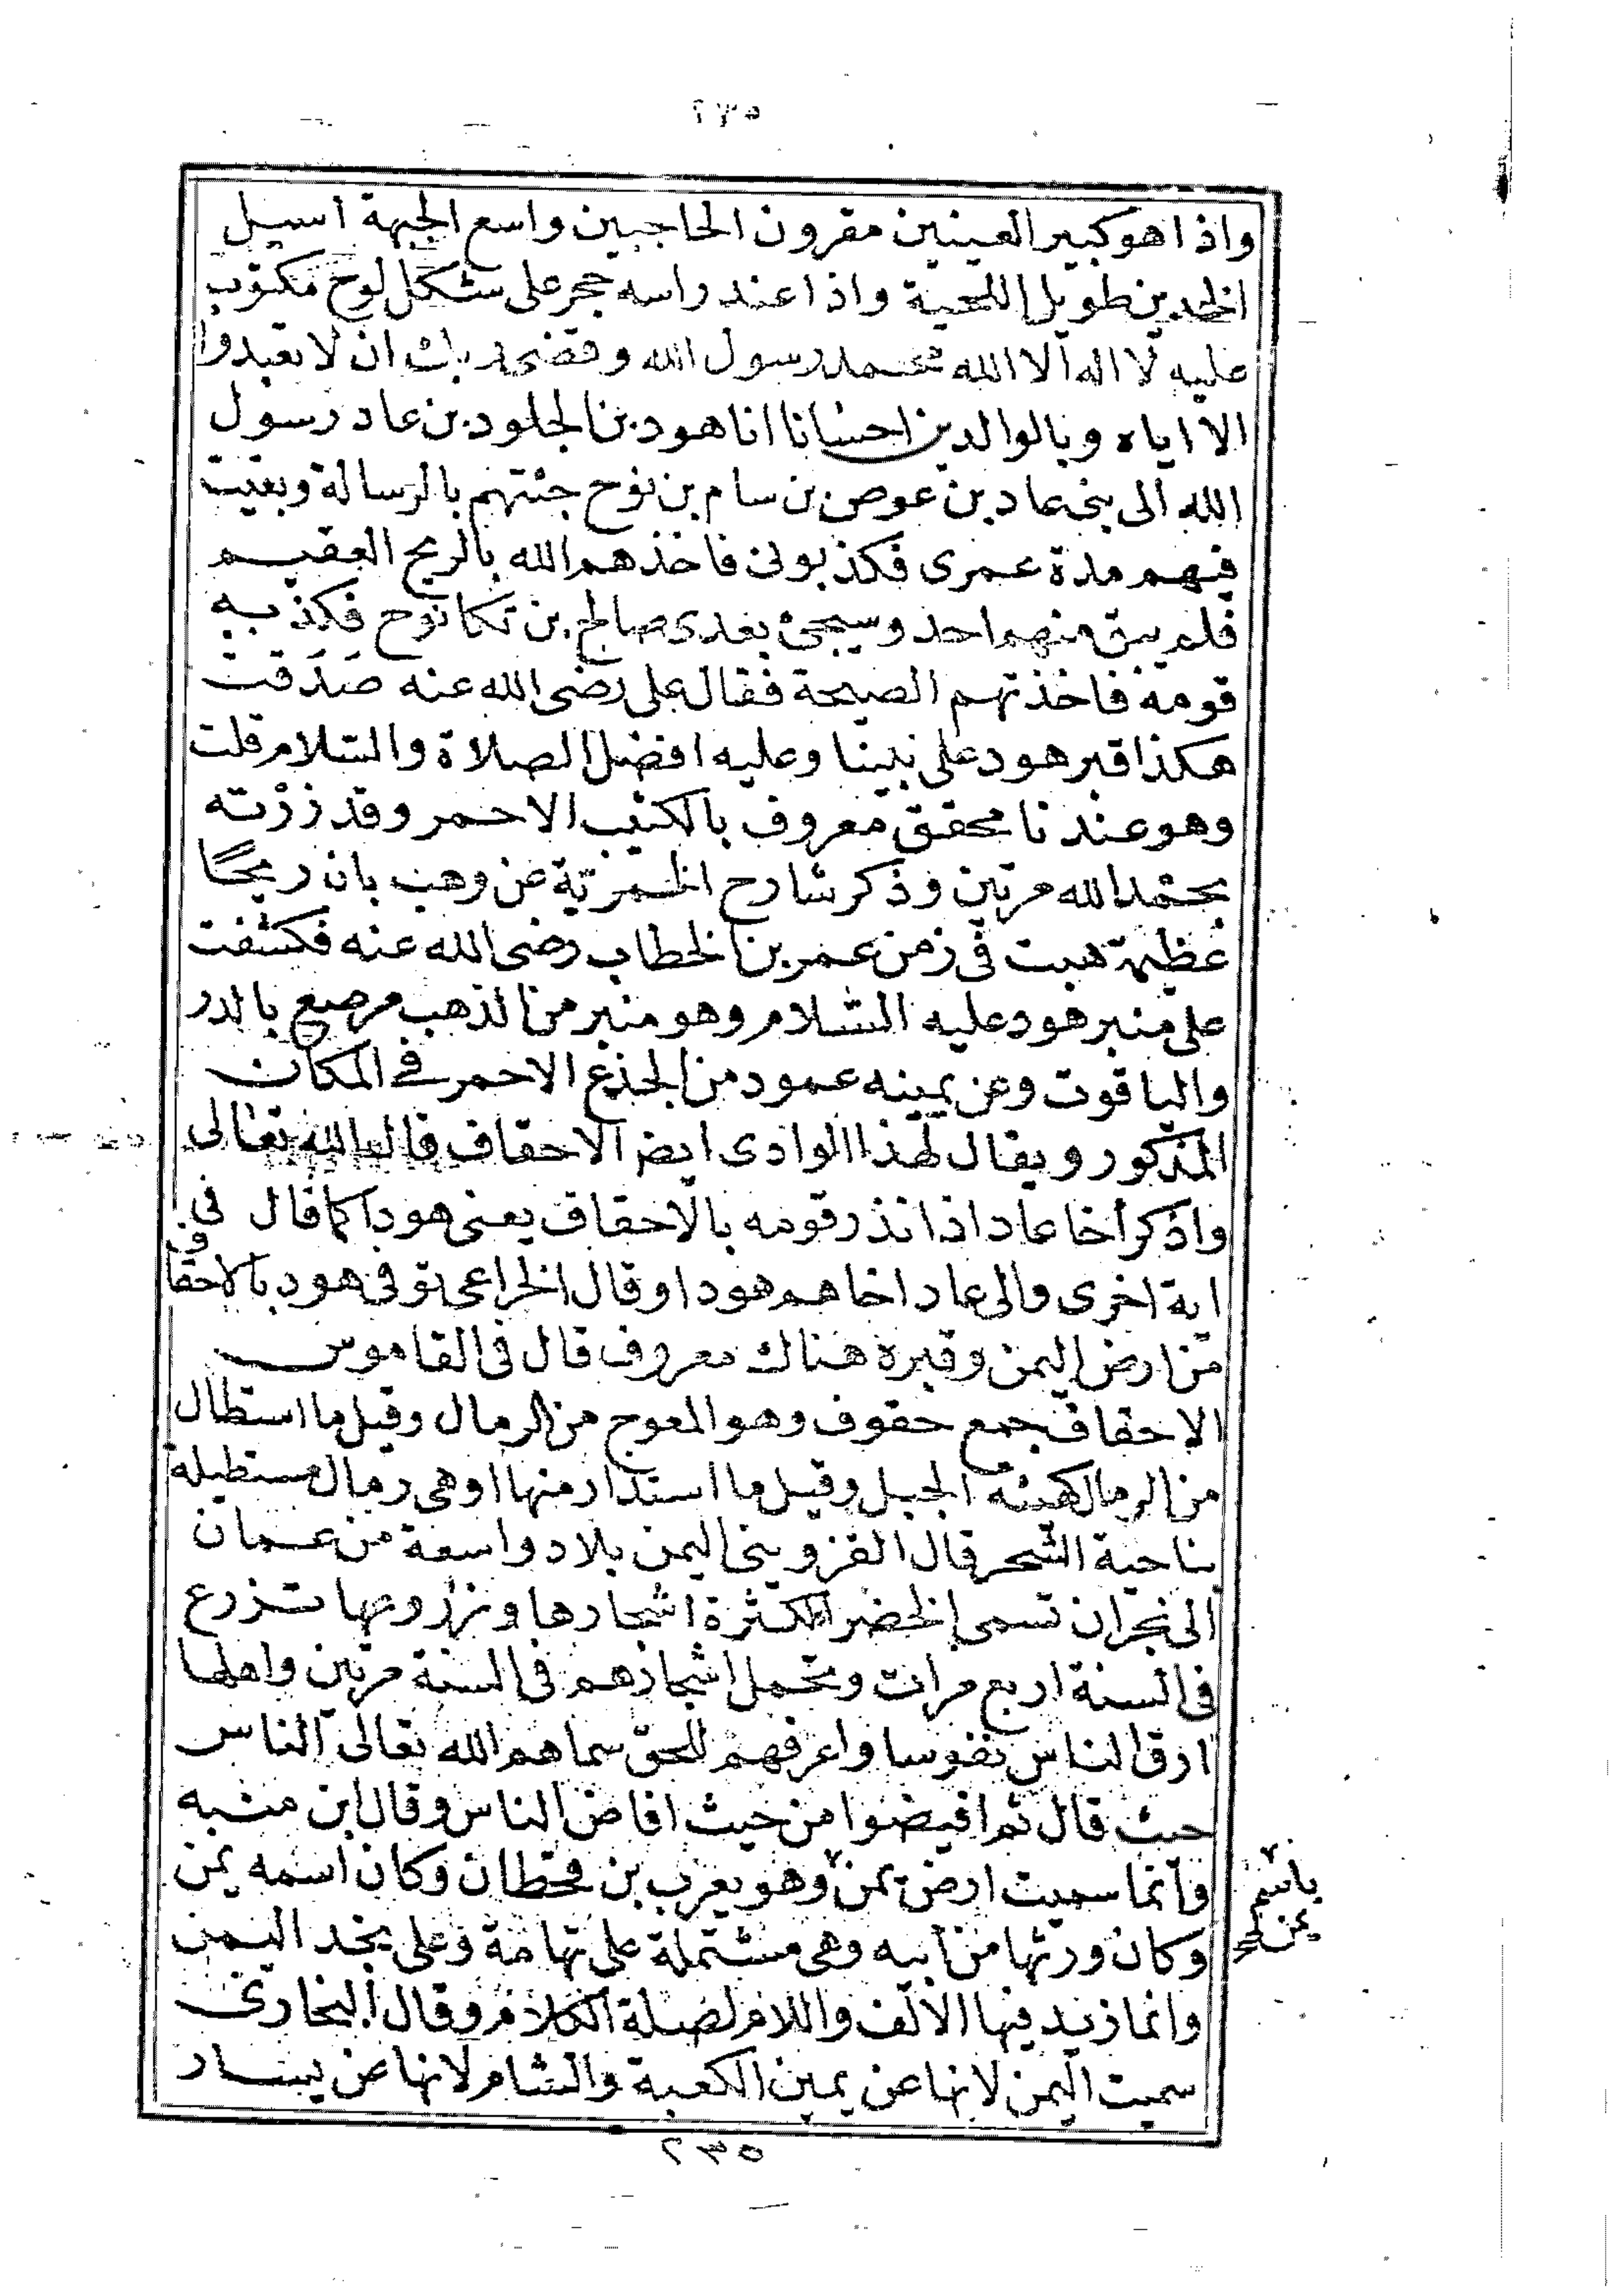 ٢٣٥
واذا هو كبير العينين مقرون الحاجبين واسع الجبهة اسيل
الخدين طويل اللحية واذا عند راسه حجر على شكل لوح مكتوب
عليه لا اله الا الله محمد رسول الله وقضى ربك ان لا تعبدوا
الا اياه وبالوالدين احسانا انا هود بن الجلود بن عاد رسول
الله الى بنى عاد بن عوص بن سام بن نوح جئتهم بالرسالة وبقيت
فيهم مدة عمرى فكذبونى فاخذهم الله بالريح العقيم
فلم يبق منهم احد وسيجئ بعدى صالح بن كانوح فكذبه
قومه فاخذتهم الصيحة فقال على رضى الله عنه صدقت
هكذا قبر هود على نبينا وعليه افضل الصلاة والسلام قلت
وهو عندنا محقق معروف بالكثيب الاحمر وقد زرته
بحمد الله مرتين وذكر شارح الخمرية عن وهب بان ريحًا
عظيمة هبت فى زمن عمر بن الخطاب رضى الله عنه فكشفت
على منبر هود عليه السلام وهو منبر من الذهب مرصع بالدر
والياقوت وعن يمينه عمود من الجذع الاحمر فى المكان
المذكور ويقال لهذا الوادى ايضا الاحقاف قال الله تعالى
واذكر أخا عاد اذ انذر قومه بالاحقاف يعنى هودا كما قال فى
اية اخرى والى عاد اخاهم هودا وقال الخزاعى توفى هود بالاحقاف
من ارض اليمن وقبره هناك معروف قال فى القاموس
الاحقاف جمع حقوف وهو المعوج من الرمال وقيل ما استطال
من الرمال كهيئة الجبل وقيل ما استدار منها اوهى رمال مستطيلة
بناحية الشحر قال القزوينى اليمن بلاد واسعة من عمان
الى نجران تسمى الخضرا لكثرة اشجارها وزروعها تزرع
فى السنة اربع مرات وتحمل اشجارهم فى السنة مرتين واهلها
ارق الناس نفوسا واعرفهم للحق سماهم الله تعالى الناس
حيث قال ثم افيضوا من حيث افاض الناس وقال ابن منبه
وانما سميت ارض يمن وهو يعرب بن قحطان وكان اسمه يمن
باسم
يمن صح
وكان ورثها من ابيه وهى مشتملة على تهامة وعلى نجد اليمن
وانما زيد فيها الألف واللام لصلة الكلام وقال البخارى
سميت اليمن لانها عن يمين الكعبة والشام لانها عن يسار
٢٣٥